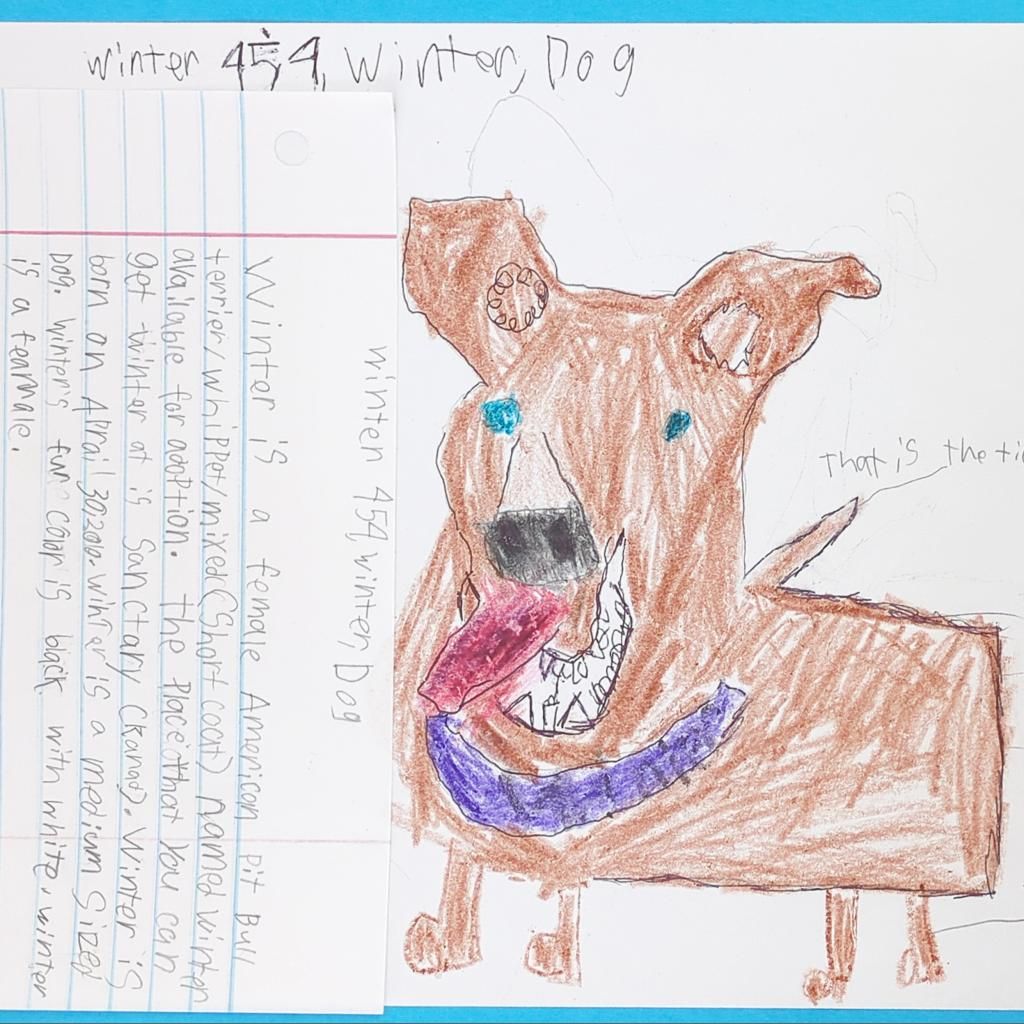 winter 454, Winter, Dog
winter 454, winter, Dog
Winter is a female American Pit Bull
terrier/whipper/mixed(Short coat) named winter
available for adoption. the Place that you can
get winter at is Sanctary (kana). Winter is
born on Alrail 30,200. winter is a medium Sized
Dog. winter's fur is black with white. winter
is a feamale.
That is the